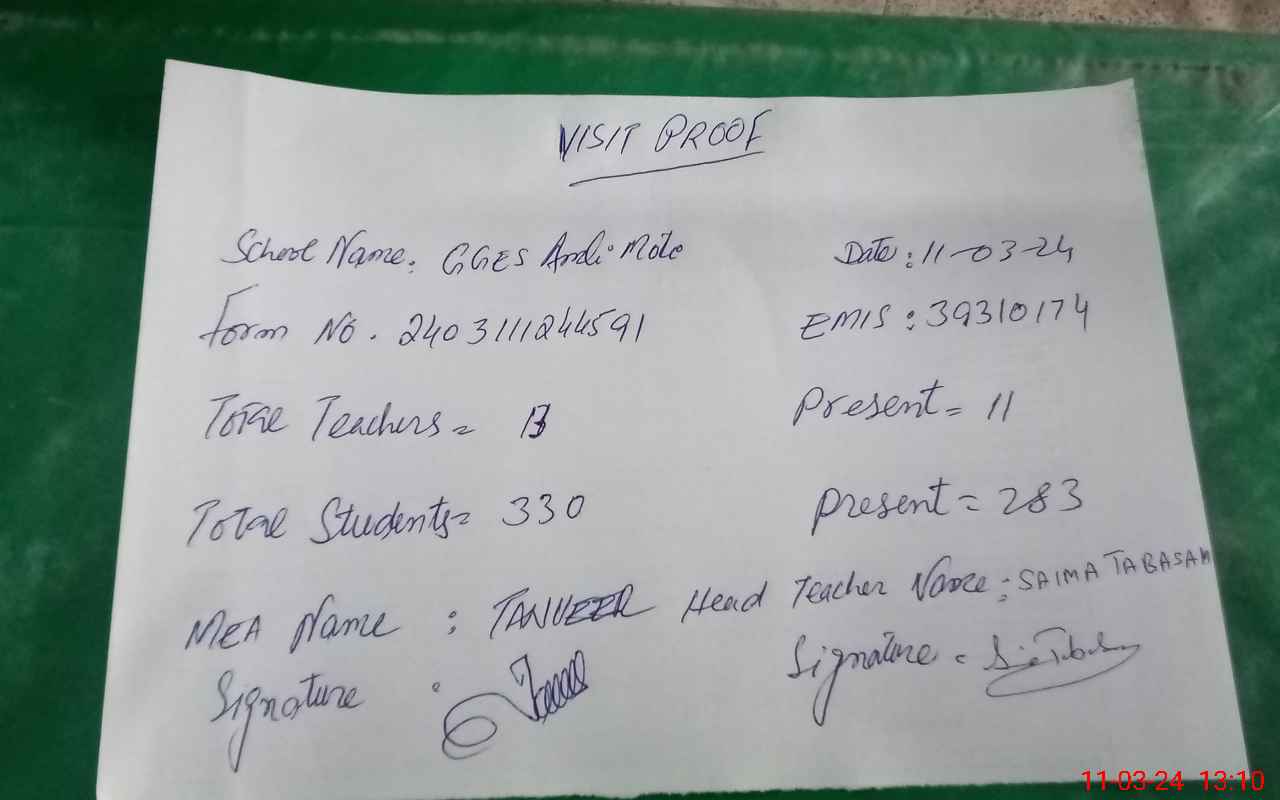 VISIT PROOF
School Name: GGES Andi Mote Date: 11-03-24
Form No. 2403111244591 EMIS: 39310174
Total Teachers = 13 Present = 11
Total Students = 330 Present = 283
MEA Name : TANVEER Head Teacher Name: SAIMA TABASAM
Signature : Signature =
11-03-24 13:10